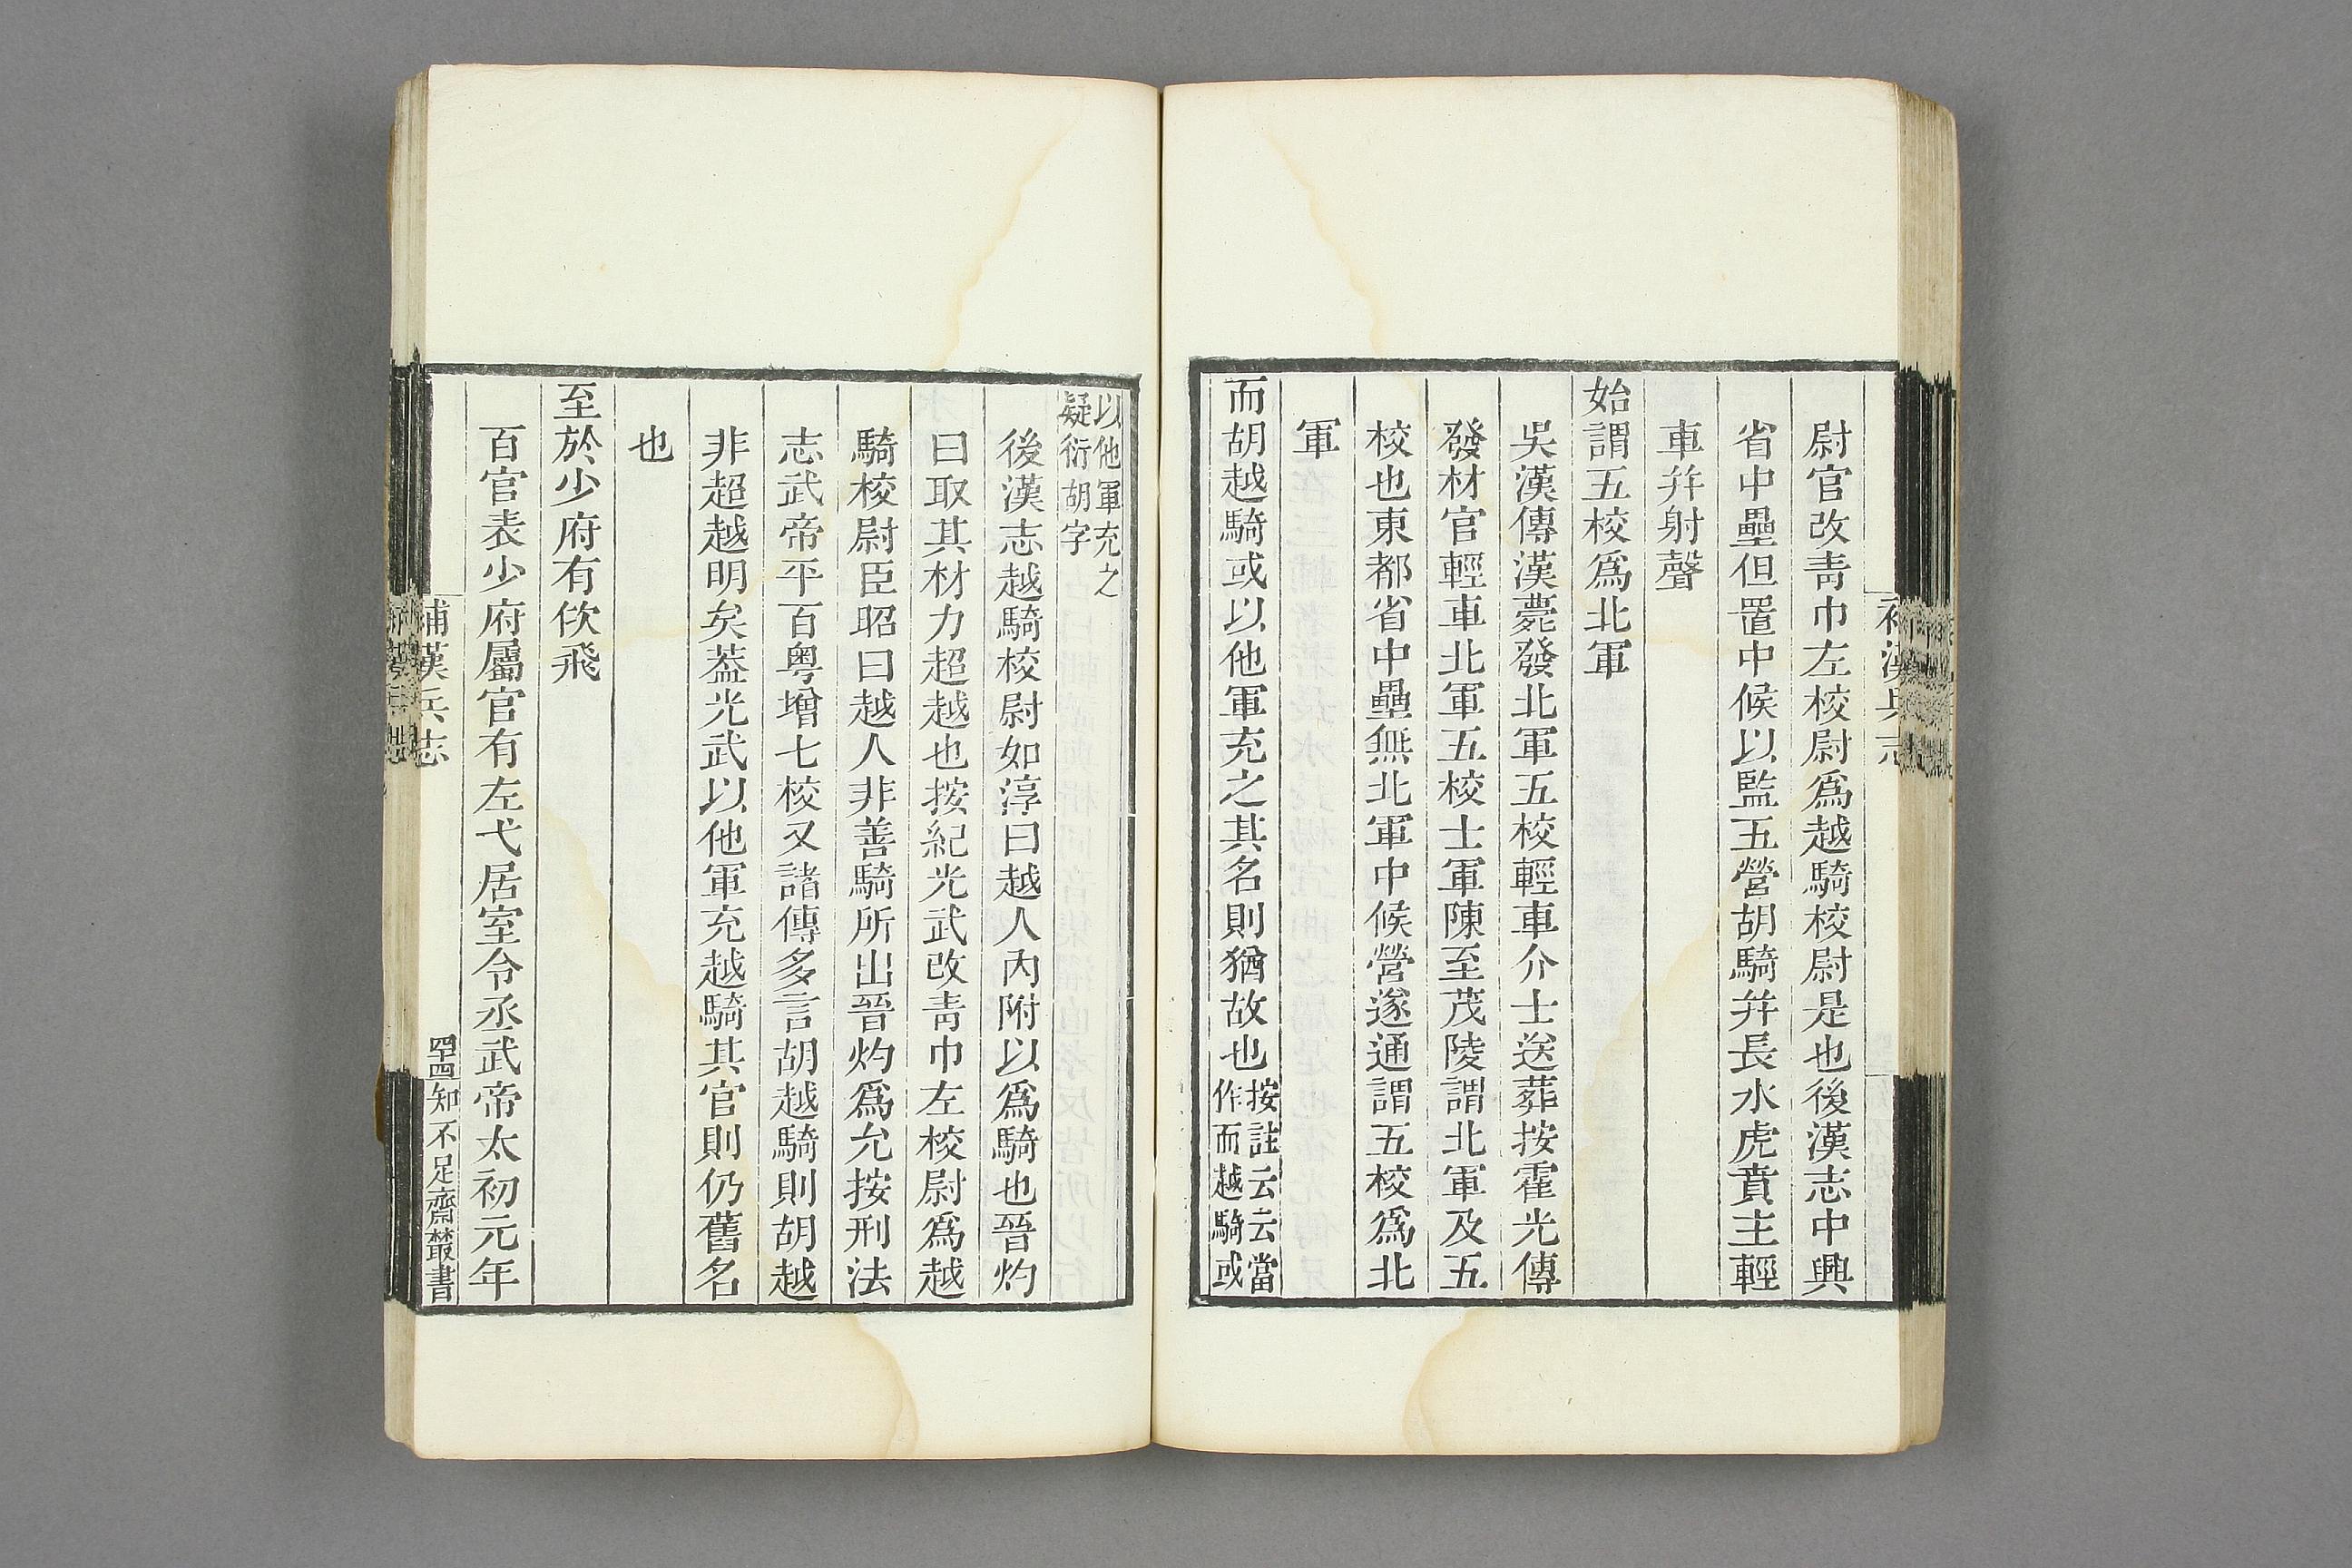 補漢兵志
尉官改靑巾左校尉爲越騎校尉是也後漢志中興
省中壘但置中候以監五營胡騎幷長水虎賁主輕
車幷射聲
始謂五校爲北軍
吳漢傳漢薨發北軍五校輕車介士送葬按霍光傳
發材官輕車北軍五校士軍陳至茂陵謂北軍及五
校也東都省中壘無北軍中候營遂通謂五校爲北
軍
而胡越騎或以他軍充之其名則猶故也按註云云當
作而越騎或
以他軍充之
疑衍胡字
後漢志越騎校尉如淳曰越人內附以爲騎也晉灼
曰取其材力超越也按紀光武改靑巾左校尉爲越
騎校尉臣昭曰越人非善騎所出晉灼爲允按刑法
志武帝平百粤增七校又諸傳多言胡越騎則胡越
非超越明矣葢光武以他軍充越騎其官則仍舊名
也
至於少府有佽飛
百官表少府屬官有左弋居室令丞武帝太初元年
補漢兵志
知不足齋叢書